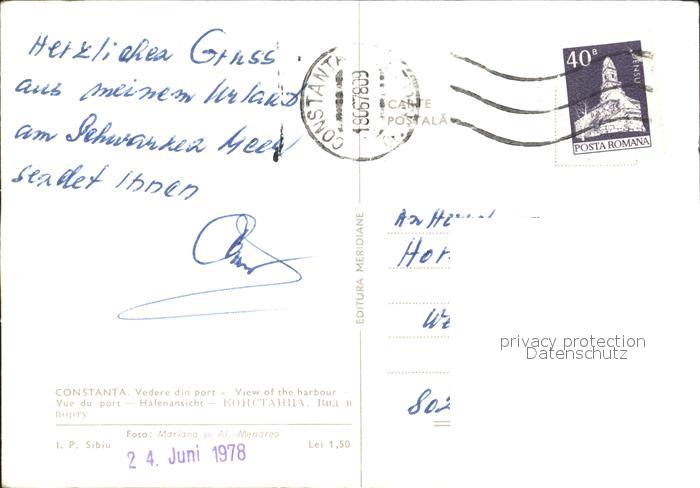 Herzlichen Gruss
aus meinem Urlaub
am Schwarzen Meer
sendet Ihnen
CONSTANȚA
18067809
CARTE
POȘTALĂ
40 B
DENSUȘ
POSTA ROMANA
EDITURA MERIDIANE
An H
Hor
We
802
privacy protection
Datenschutz
CONSTANȚA. Vedere din port – View of the harbour –
Vue du port – Hafenansicht – КОНСТАНЦА. Вид в
порту
Foto: Mariana și Al. Mendrea
I. P. Sibiu
Lei 1,50
2 4. Juni 1978